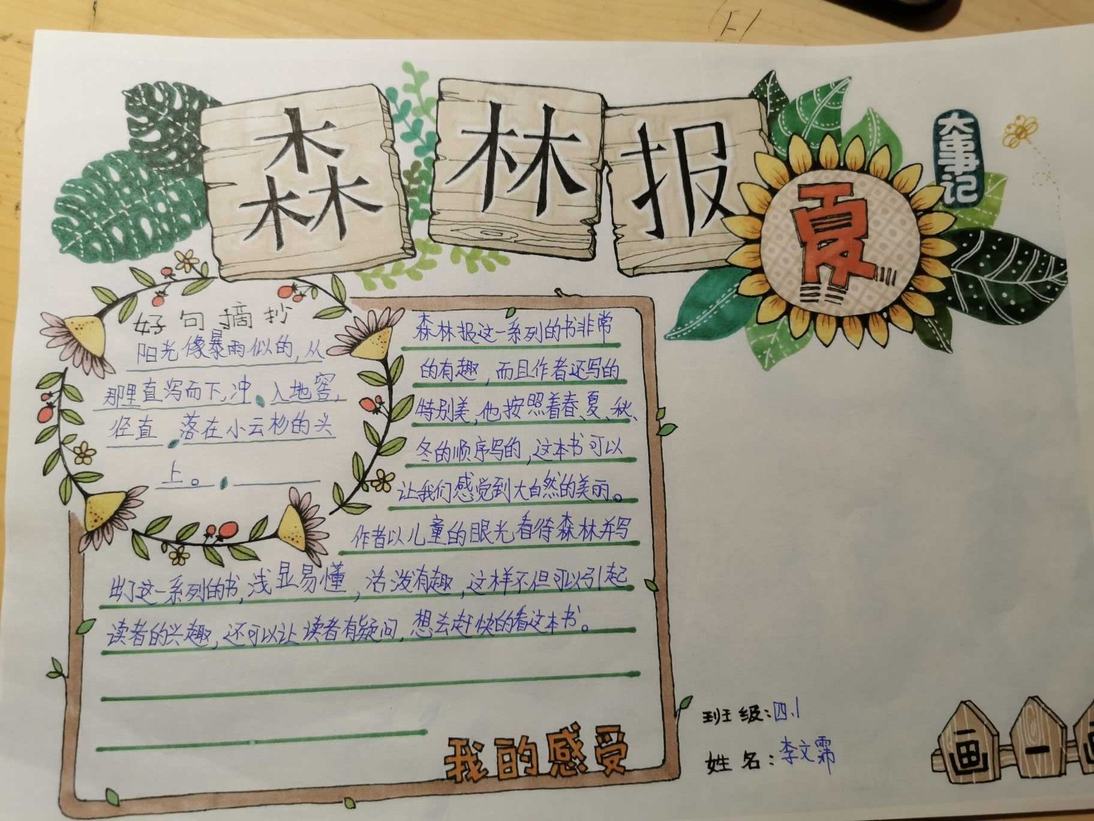 森林报
夏
大事记
好句摘抄
阳光像暴雨似的,从
那里直泻而下,冲、入地窖,
径直、落在小云杉的头
上。
森林报这一系列的书非常
的有趣,而且作者还写的
特别美,他按照着春、夏、秋、
冬的顺序写的,这本书可以
让我们感觉到大自然的美丽。
作者以儿童的眼光看待森林并写
出了这一系列的书,浅显易懂,活泼有趣,这样不但可以引起
读者的兴趣,还可以让读者有疑问,想去赶快的看这本书。
我的感受
班级:四.1
姓名:李文霈
画一